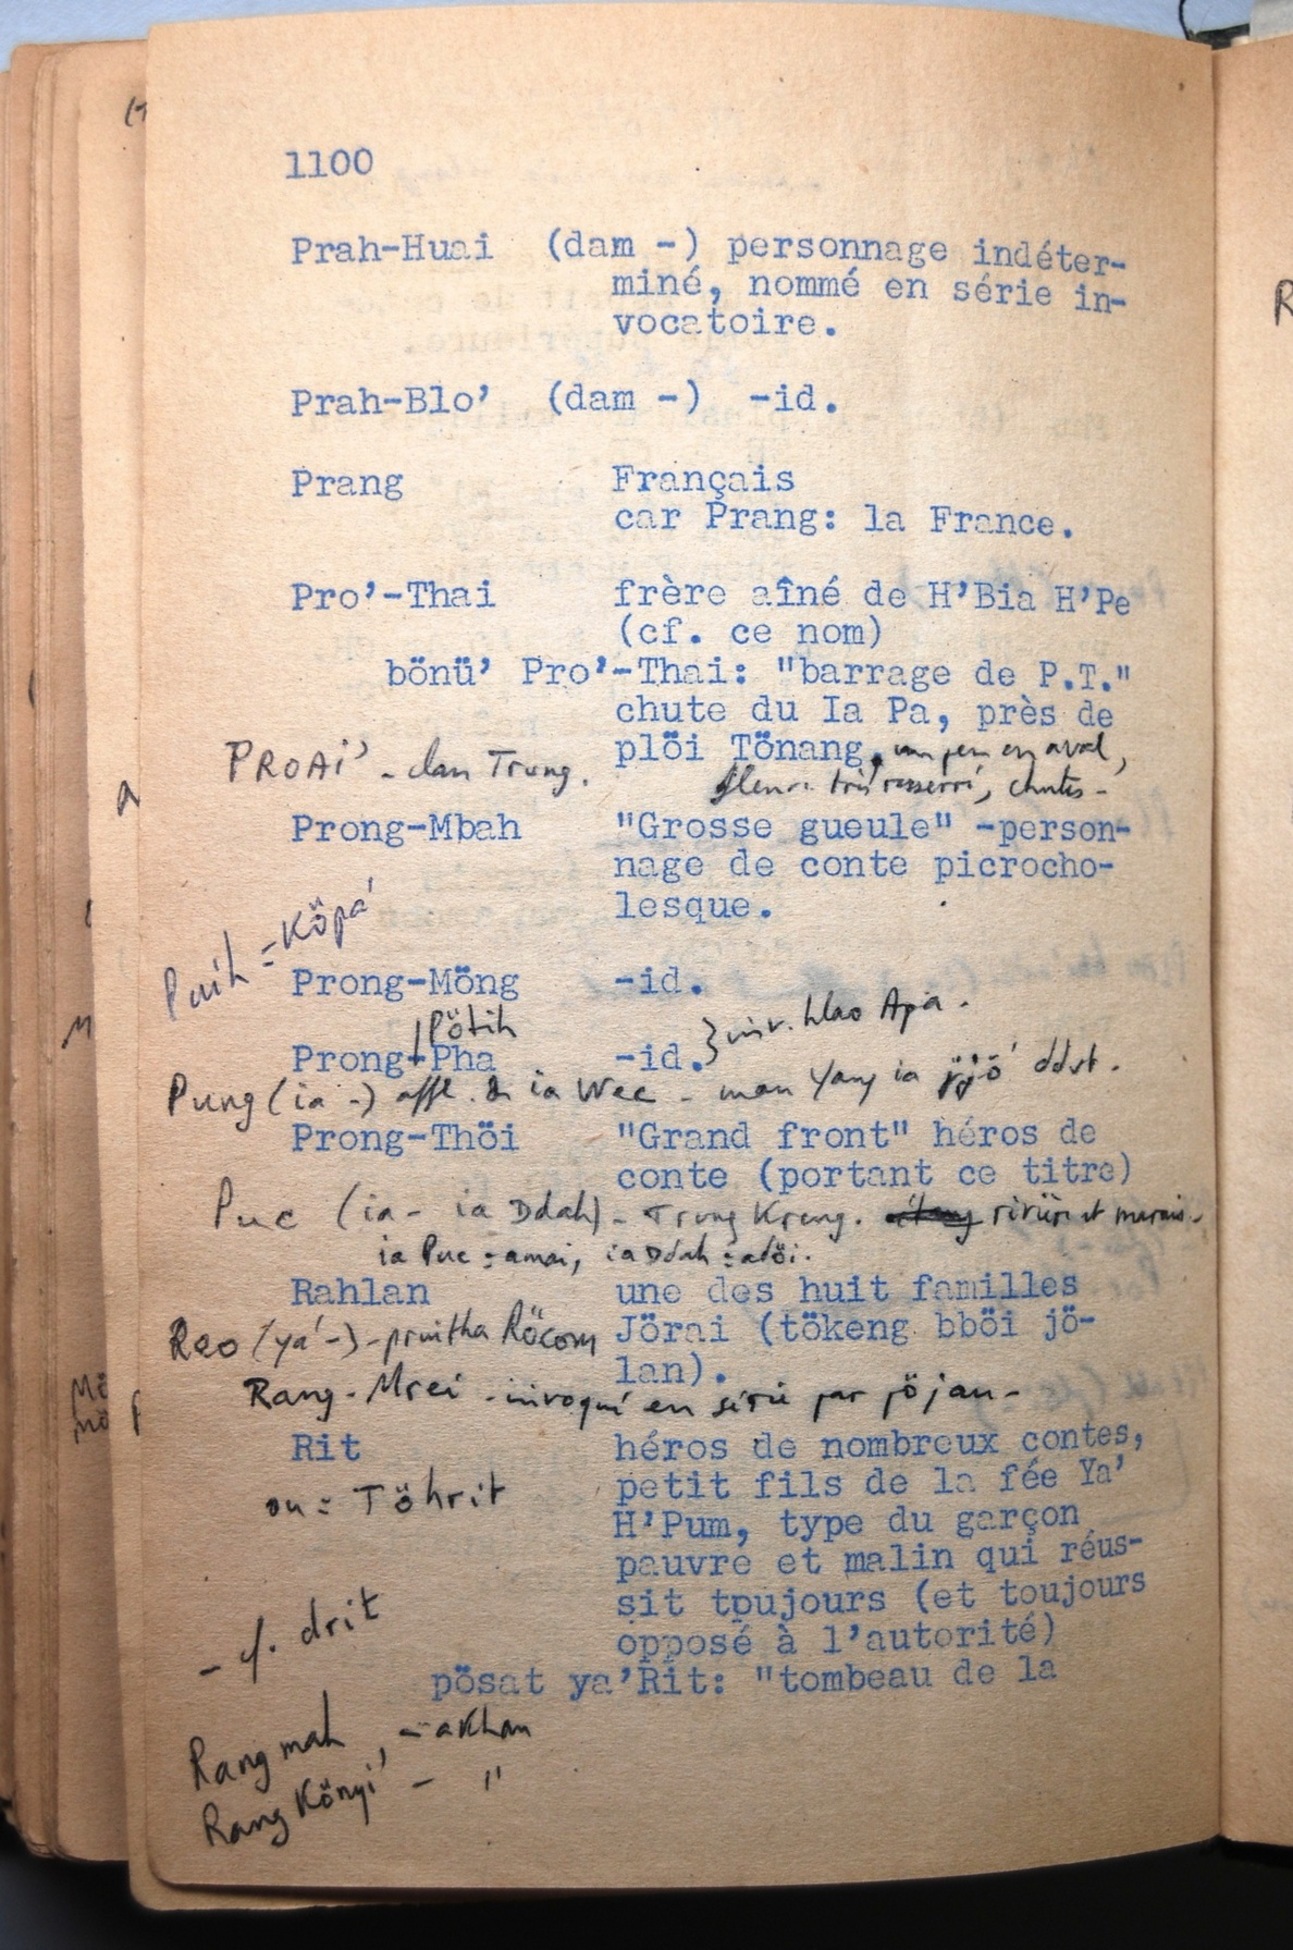 1100
Prah-Huai (dam -) personnage indéter-
miné, nommé en série in-
vocatoire.
Prah-Blo' (dam -) -id.
Prang Français
car Prang: la France.
Pro'-Thai frère aîné de H'Bia H'Pe
(cf. ce nom)
bönü' Pro'-Thai: "barrage de P.T."
chute du Ia Pa, près de
plöi Tönang, un peu en aval,
PROAI' - clan Trung.
fleuve très resserré, chutes-
Prong-Mbah "Grosse gueule" -person-
nage de conte picrocho-
lesque.
Puih =Köpa'
Prong-Möng -id.
Pötih
Prong-Pha -id. } inv. hlao Apa.
Pung (ia -) affl. de ia Wec - man Yang ia
Prong-Thöi "Grand front" héros de
conte (portant ce titre)
Puc (ia - ia Ddah) - Trung Kreng. étang rivière et marais-
ia Puc = amai, ia Ddah = adöi.
Rahlan une des huit familles
Jörai (tökeng bböi jö-
lan).
Reo (ya' -) - Röcom
Rang-Mrei - invoqué en série par pöjau-
Rit héros de nombreux contes,
petit fils de la fée Ya'
H'Pum, type du garçon
pauvre et malin qui réus-
sit toujours (et toujours
opposé à l'autorité)
ou = Töhrit
- cf. drit
pösat ya'Rit: "tombeau de la
Rang mah, - akhan
Rang Könyi' - "
R